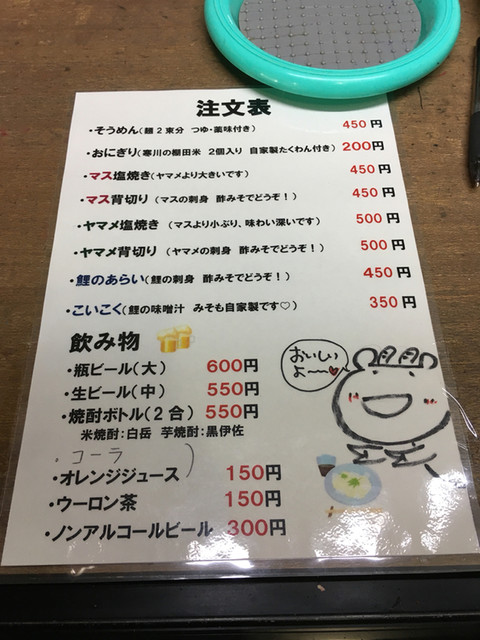 注文表
・そうめん(麺2束分 つゆ・薬味付き) 450円
・おにぎり(寒川の棚田米 2個入り 自家製たくわん付き) 200円
・マス塩焼き(ヤマメより大きいです) 450円
・マス背切り(マスの刺身 酢みそでどうぞ!) 450円
・ヤマメ塩焼き (マスより小ぶり、味わい深いです) 500円
・ヤマメ背切り (ヤマメの刺身 酢みそでどうぞ!) 500円
・鯉のあらい(鯉の刺身 酢みそでどうぞ!) 450円
・こいこく(鯉の味噌汁 みそも自家製です♡) 350円
飲み物
・瓶ビール(大) 600円
・生ビール(中) 550円
・焼酎ボトル(2合) 550円
米焼酎:白岳 芋焼酎:黒伊佐
・コーラ )
・オレンジジュース 150円
・ウーロン茶 150円
・ノンアルコールビール 300円
おいしい
よ〜♥